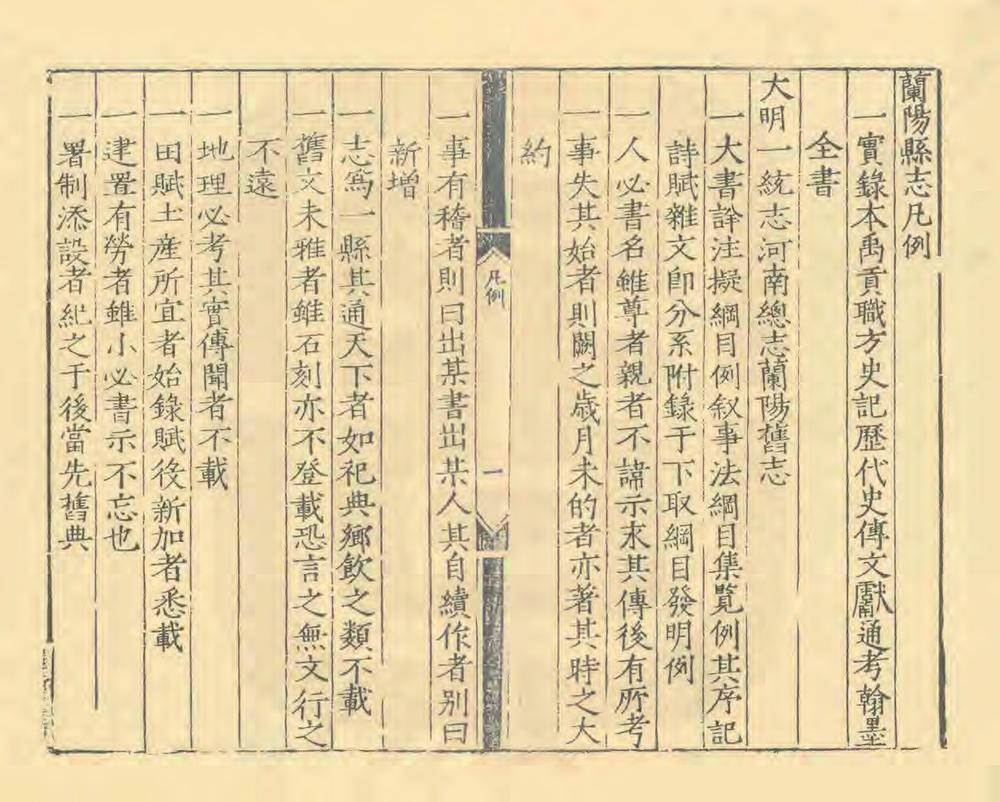 蘭陽縣志凡例
一實錄本禹貢職方史記歷代史傳文獻通考翰墨
全書
大明一統志河南總志蘭陽舊志
一大書詳注擬綱目例叙事法綱目集覧例其序記
詩賦雜文卽分系附錄于下取綱目發明例
一人必書名雖尊者親者不諱示求其傳後有所考
一事失其始者則闕之歲月未的者亦著其時之大
約
凡例
一
一事有稽者則曰出某書出某人其自續作者别曰
新增
一志爲一縣其通天下者如祀典鄉飲之類不載
一舊文未雅者雖石刻亦不登載恐言之無文行之
不遠
一地理必考其實傳聞者不載
一田賦土産所宜者始錄賦役新加者悉載
一建置有勞者雖小必書示不忘也
一署制添設者紀之于後當先舊典